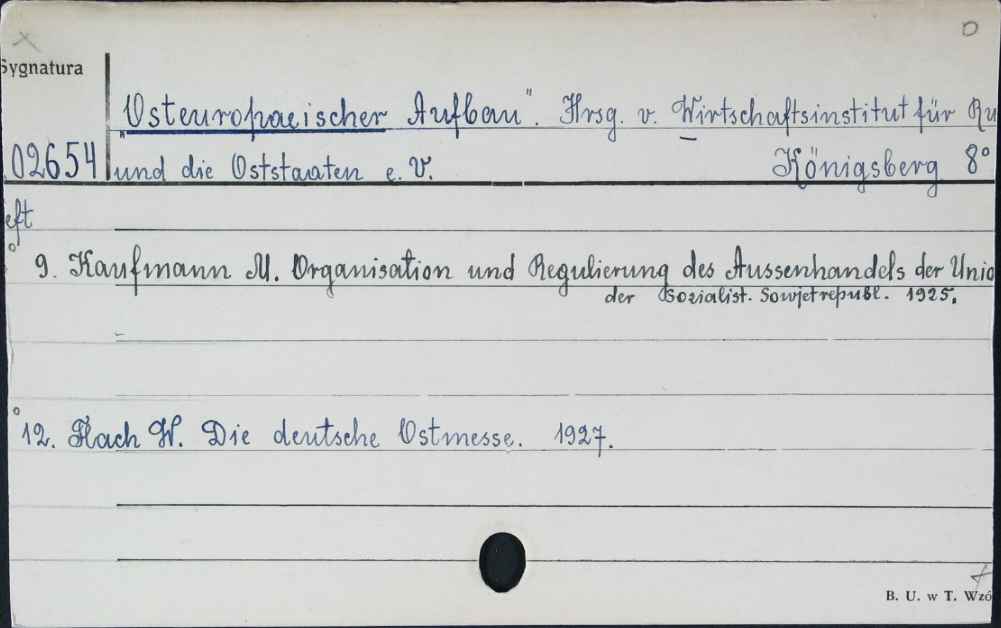 Sygnatura
"Osteuropaeischer Aufbau". Hrsg. v. Wirtschaftsinstitut für Ru
02654 und die Oststaaten e. V. Königsberg 8°
eft
9. Kaufmann M. Organisation und Regulierung des Aussenhandels der Unio
der Sozialist. Sowjetrepubl. 1925.
12. Flach W. Die deutsche Ostmesse. 1927.
B. U. w T. Wzó